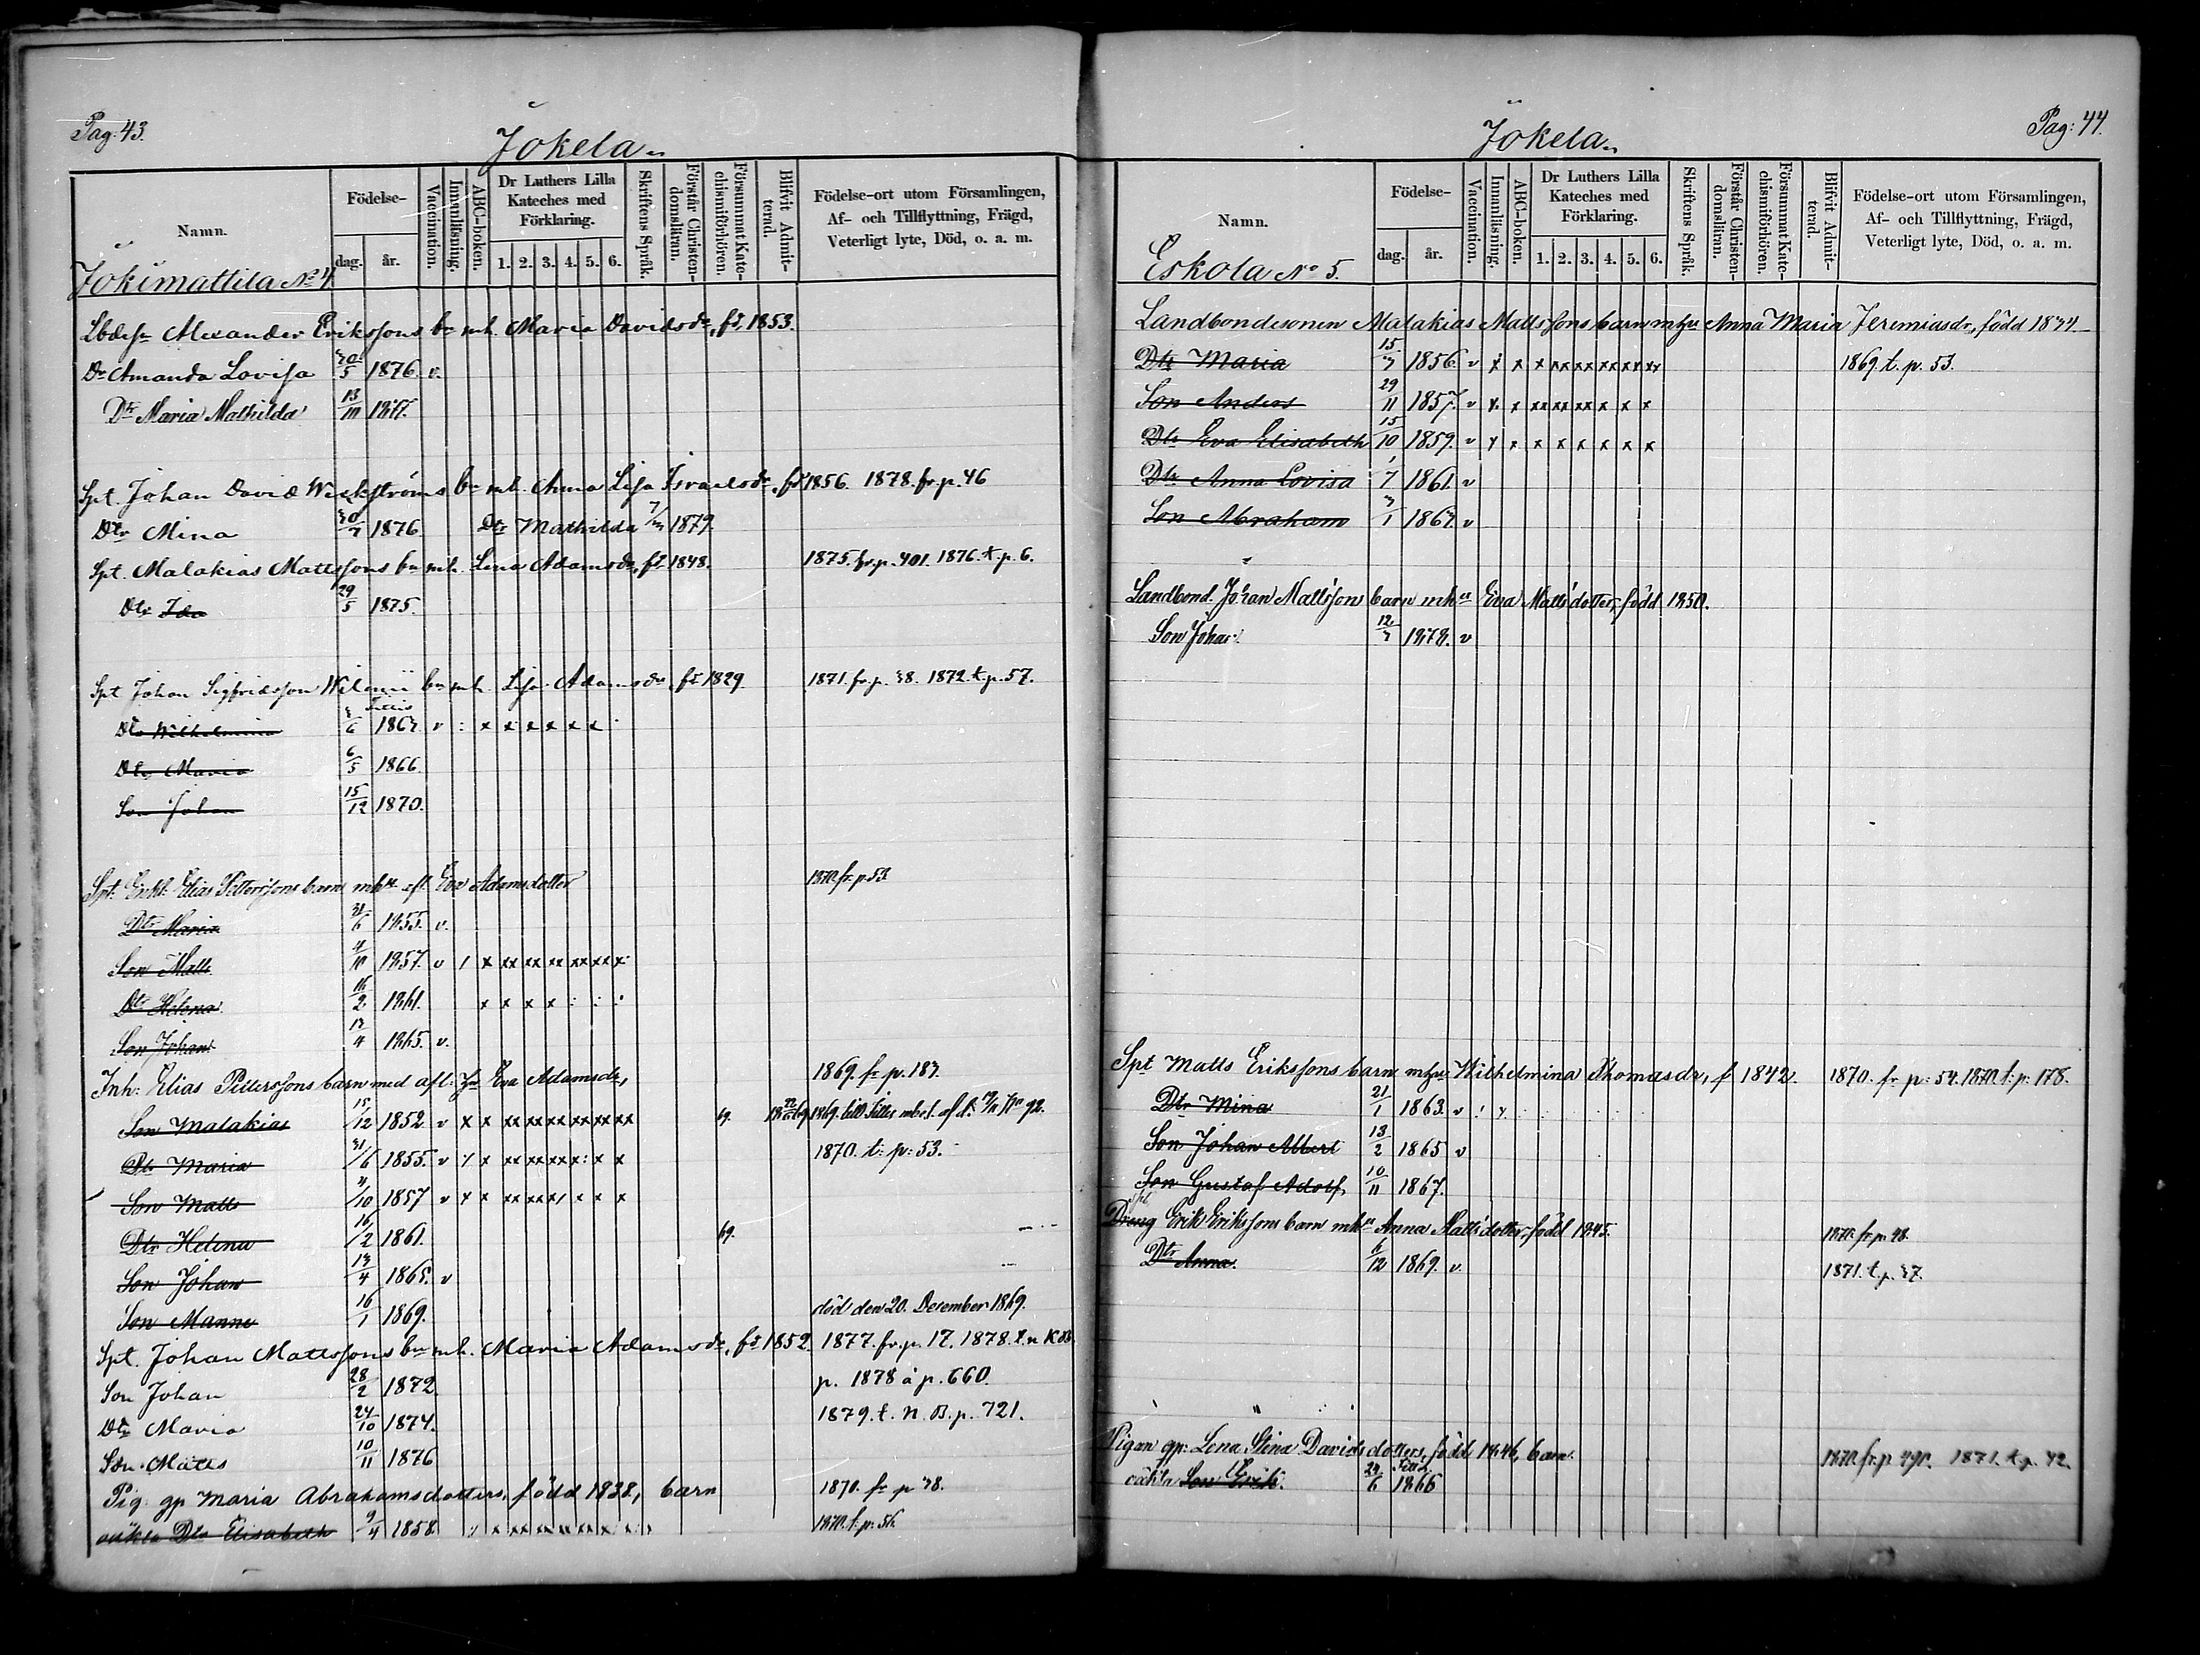 Pag: 43.
Jokela.
Namn.
Födelse-
dag.
år.
Vaccination.
Innanläsning.
ABC-boken.
Dr Luthers Lilla Kateches med Förklaring.
1. 2. 3. 4. 5. 6.
Skriftens Språk.
Förstår Christendomsläran.
Försummat Katechismiförhören.
Blifvit Admitterad.
Födelse-ort utom Församlingen,
Af- och Tillflyttning, Frägd,
Veterligt lyte, Död, o. a. m.
Jokimattila No 4
Alexander Erikssons bn mh. Maria Davidsdr, fd 1853.
Dr Amanda Lovisa 30/5 1876. v.
Dtr Maria Mathilda 13/10 1877.
Spt. Johan David Wickströms bn mh. Anna Lisa Israelsdr, fd 1856. 1878. fr. p. 46
Dtr Mina 30/7 1876 Dtr Mathilda 1879.
Spt. Malakias Mattssons bn mh. Lena Adamsdr, fd 1848. 1875. fr. p. 401. 1876. t. p. 6.
Dtr Ida 29/5 1875.
Spt Johan Sigfridsson bn mh. Lisa Adamsdr, fd 1829. 1871. fr. p. 38. 1872. t. p. 57.
Dtr Wilhelmina 3/6 1863 v : x x x x x x :
Dtr Maria 6/5 1866.
Son Johan 15/12 1870.
Spt. Enkl. Elias Petterssons barn mhu afl. Eva Adamsdotter 1870. fr. p. 53
Dtr Maria 31/6 1855. v.
Son Matts 4/10 1857. v / x xx xx xx xx xx x:
Dtr Helena 16/2 1861. x x x x : : :
Son Johan 13/4 1865. v.
Inh: Elias Petterssons barn med afl: hu Eva Adamsdr, 1869. fr p. 183.
Son Malakias 15/12 1852 v x x xx xx xx xx xx xx 69.
Dtr Maria 31/6 1855. v x x xx xx xx x: x x 1870. t: p: 53.
Son Matts 4/10 1857 v x x xx xx x, x x x
Dtr Helena 16/2 1861. 69.
Son Johan 13/4 1865. v
Son Manne 16/1 1869. död den 20. December 1869.
Spt. Johan Mattssons bn mh. Maria Adamsdr, fd 1852. 1877. fr. p. 17. 1878. t. n K.B.
Son Johan 28/2 1872 p. 1878 å p. 660.
Dtr Maria 24/10 1874. 1879. t. N. B. p. 721.
Son Matts 10/11 1876
Pig. gp Maria Abrahamsdotters, född 1838, barn 1870. fr p 38.
oäkta Dtr Elisabeth 9/4 1858. 1870. t: p: 56.
Pag: 44.
Jokela.
Namn.
Födelse-
dag.
år.
Vaccination.
Innanläsning.
ABC-boken.
Dr Luthers Lilla Kateches med Förklaring.
1. 2. 3. 4. 5. 6.
Skriftens Språk.
Förstår Christendomsläran.
Försummat Katechismiförhören.
Blifvit Admitterad.
Födelse-ort utom Församlingen,
Af- och Tillflyttning, Frägd,
Veterligt lyte, Död, o. a. m.
Eskola No 5.
Landbondesonen Malakias Mattssons barn mhu Anna Maria Jeremiasdr, född 1834
Dtr Maria 15/3 1856 v x x x xx xx xx xx xx 1869. t. p. 53.
Son Anders 29/11 1857. v x. x xx xx xx x x x
Dtr Eva Elisabeth 15/10 1859. v x x x x x x x x
Dtr Anna Lovisa 1/7 1861. v
Son Abraham 3/1 1863 v
Landbond. Johan Mattsson barn mhu Eva Mattsdotter, född 1850.
Son Johan 12/3 1878. v
Spt Matts Erikssons barn mhu Wilhelmina Thomasdr, f 1842. 1870. fr p: 54. 1870. t: p: 178.
Dtr Mina 21/1 1863. v
Son Johan Albert 13/2 1865 v
Son Gustaf Adolf 10/11 1867.
Spt Dräng Erik Erikssons barn mhu Anna Mattsdotter, född 1845. 1870. fr. p. 48.
Dtr Anna. 6/12 1869. v. 1871. t. p. 37.
Pigan gp: Lena Stina Davidsdotters, född 1846, barn. 1870. fr. p 491. 1871. t. p. 42.
oäkta Son Erik. 1866